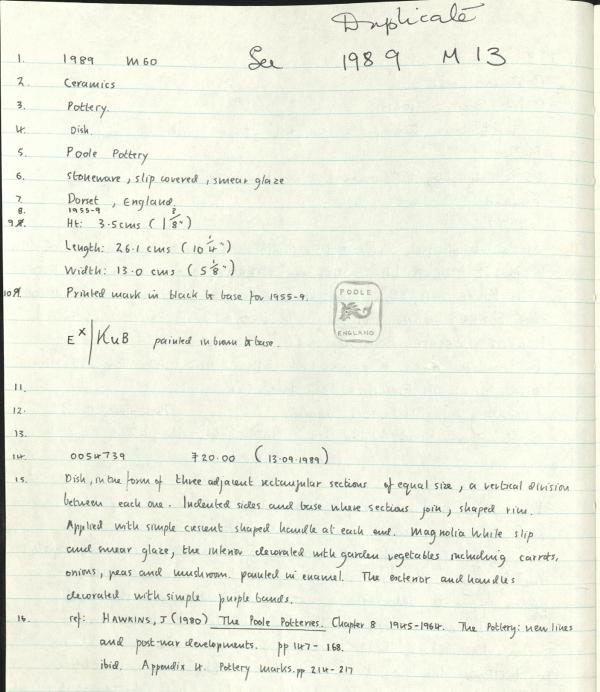 Duplicate
1. 1989 M60 See 1989 M 13
2. Ceramics
3. Pottery.
4. Dish.
5. Poole Pottery
6. Stoneware, slip covered, smear glaze
7. Dorset, England.
8. 1955-9
9. Ht: 3.5cms (1 3/8")
Length: 26.1 cms (10 1/4")
Width: 13.0 cms (5 1/8")
10. Printed mark in black to base for 1955-9.
POOLE
ENGLAND
EX/KUB painted in brown to base.
11.
12.
13.
14. 0054739 £20.00 (13.09.1989)
15. Dish, in the form of three adjacent rectangular sections of equal size, a vertical division
between each one. Indented sides and base where sections join, shaped rim.
Applied with simple crescent shaped handle at each end. Magnolia White slip
and smear glaze, the interior decorated with garden vegetables including carrots,
onions, peas and mushroom. painted in enamel. The exterior and handles
decorated with simple purple bands.
16. ref: HAWKINS, J (1980) The Poole Potteries. Chapter 8 1945-1964. The Pottery: new lines
and post-war developments. pp 147 - 168.
ibid. Appendix 4. Pottery Marks. pp 214-217